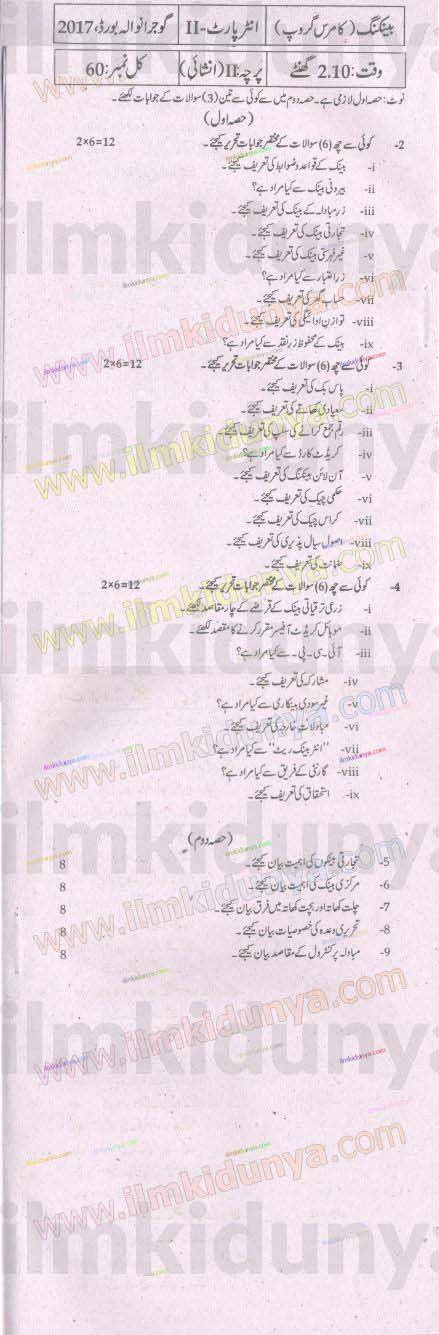 بینکنگ (کامرس گروپ) انٹر پارٹ-II گوجرانوالہ بورڈ، 2017
وقت: 2.10 گھنٹے پرچہ: II (انشائی) کل نمبر: 60
نوٹ: حصہ اول لازمی ہے۔ حصہ دوم میں سے کوئی سے تین (3) سوالات کے جوابات لکھئے۔
(حصہ اول)
2- کوئی سے چھ (6) سوالات کے مختصر جوابات تحریر کیجئے۔ 2×6=12
i- بینک کے قواعد و ضوابط کی تعریف کیجئے۔
ii- بیرونی بینک سے کیا مراد ہے؟
iii- زرمبادلہ کے بینک کی تعریف کیجئے۔
iv- تجارتی بینک کی تعریف کیجئے۔
v- غیر فہرستی بینک کی تعریف کیجئے۔
vi- زر اعتبار سے کیا مراد ہے؟
vii- حساب گھر کی تعریف کیجئے۔
viii- توازن ادائیگی کی تعریف کیجئے۔
ix- بینک کے محفوظ زر نقد سے کیا مراد ہے؟
3- کوئی سے چھ (6) سوالات کے مختصر جوابات تحریر کیجئے۔ 2×6=12
i- پاس بک کی تعریف کیجئے۔
ii- میعادی کھاتے کی تعریف کیجئے۔
iii- رقم جمع کرانے کی سلپ کی تعریف کیجئے۔
iv- کریڈٹ کارڈ سے کیا مراد ہے؟
v- آن لائن بینکنگ کی تعریف کیجئے۔
vi- حکمی چیک کی تعریف کیجئے۔
vii- کراس چیک کی تعریف کیجئے۔
viii- اصول سیال پذیری کی تعریف کیجئے۔
ix- ضمانت کی تعریف کیجئے۔
4- کوئی سے چھ (6) سوالات کے مختصر جوابات تحریر کیجئے۔ 2×6=12
i- زرعی ترقیاتی بینک کے قرضے کے چار مقاصد لکھئے۔
ii- موبائل کریڈٹ آفیسر مقرر کرنے کا مقصد لکھئے۔
iii- آئی۔سی۔پی۔ سے کیا مراد ہے؟
iv- مشارکہ کی تعریف کیجئے۔
v- غیر سودی بینکاری سے کیا مراد ہے؟
vi- مبادلات خارجہ کی تعریف کیجئے۔
vii- "انٹر بینک ریٹ" سے کیا مراد ہے؟
viii- گارنٹی کے فریق سے کیا مراد ہے؟
ix- استحقاق کی تعریف کیجئے۔
(حصہ دوم)
5- تجارتی بینکوں کی اہمیت بیان کیجئے۔ 8
6- مرکزی بینک کی اہمیت بیان کیجئے۔ 8
7- چلت کھاتہ اور بچت کھاتہ میں فرق بیان کیجئے۔ 8
8- تحریری وعدہ کی خصوصیات بیان کیجئے۔ 8
9- مبادلہ پر کنٹرول کے مقاصد بیان کیجئے۔ 8
ilmkidunya
www.ilmkidunya.com
ilmkidunya.com